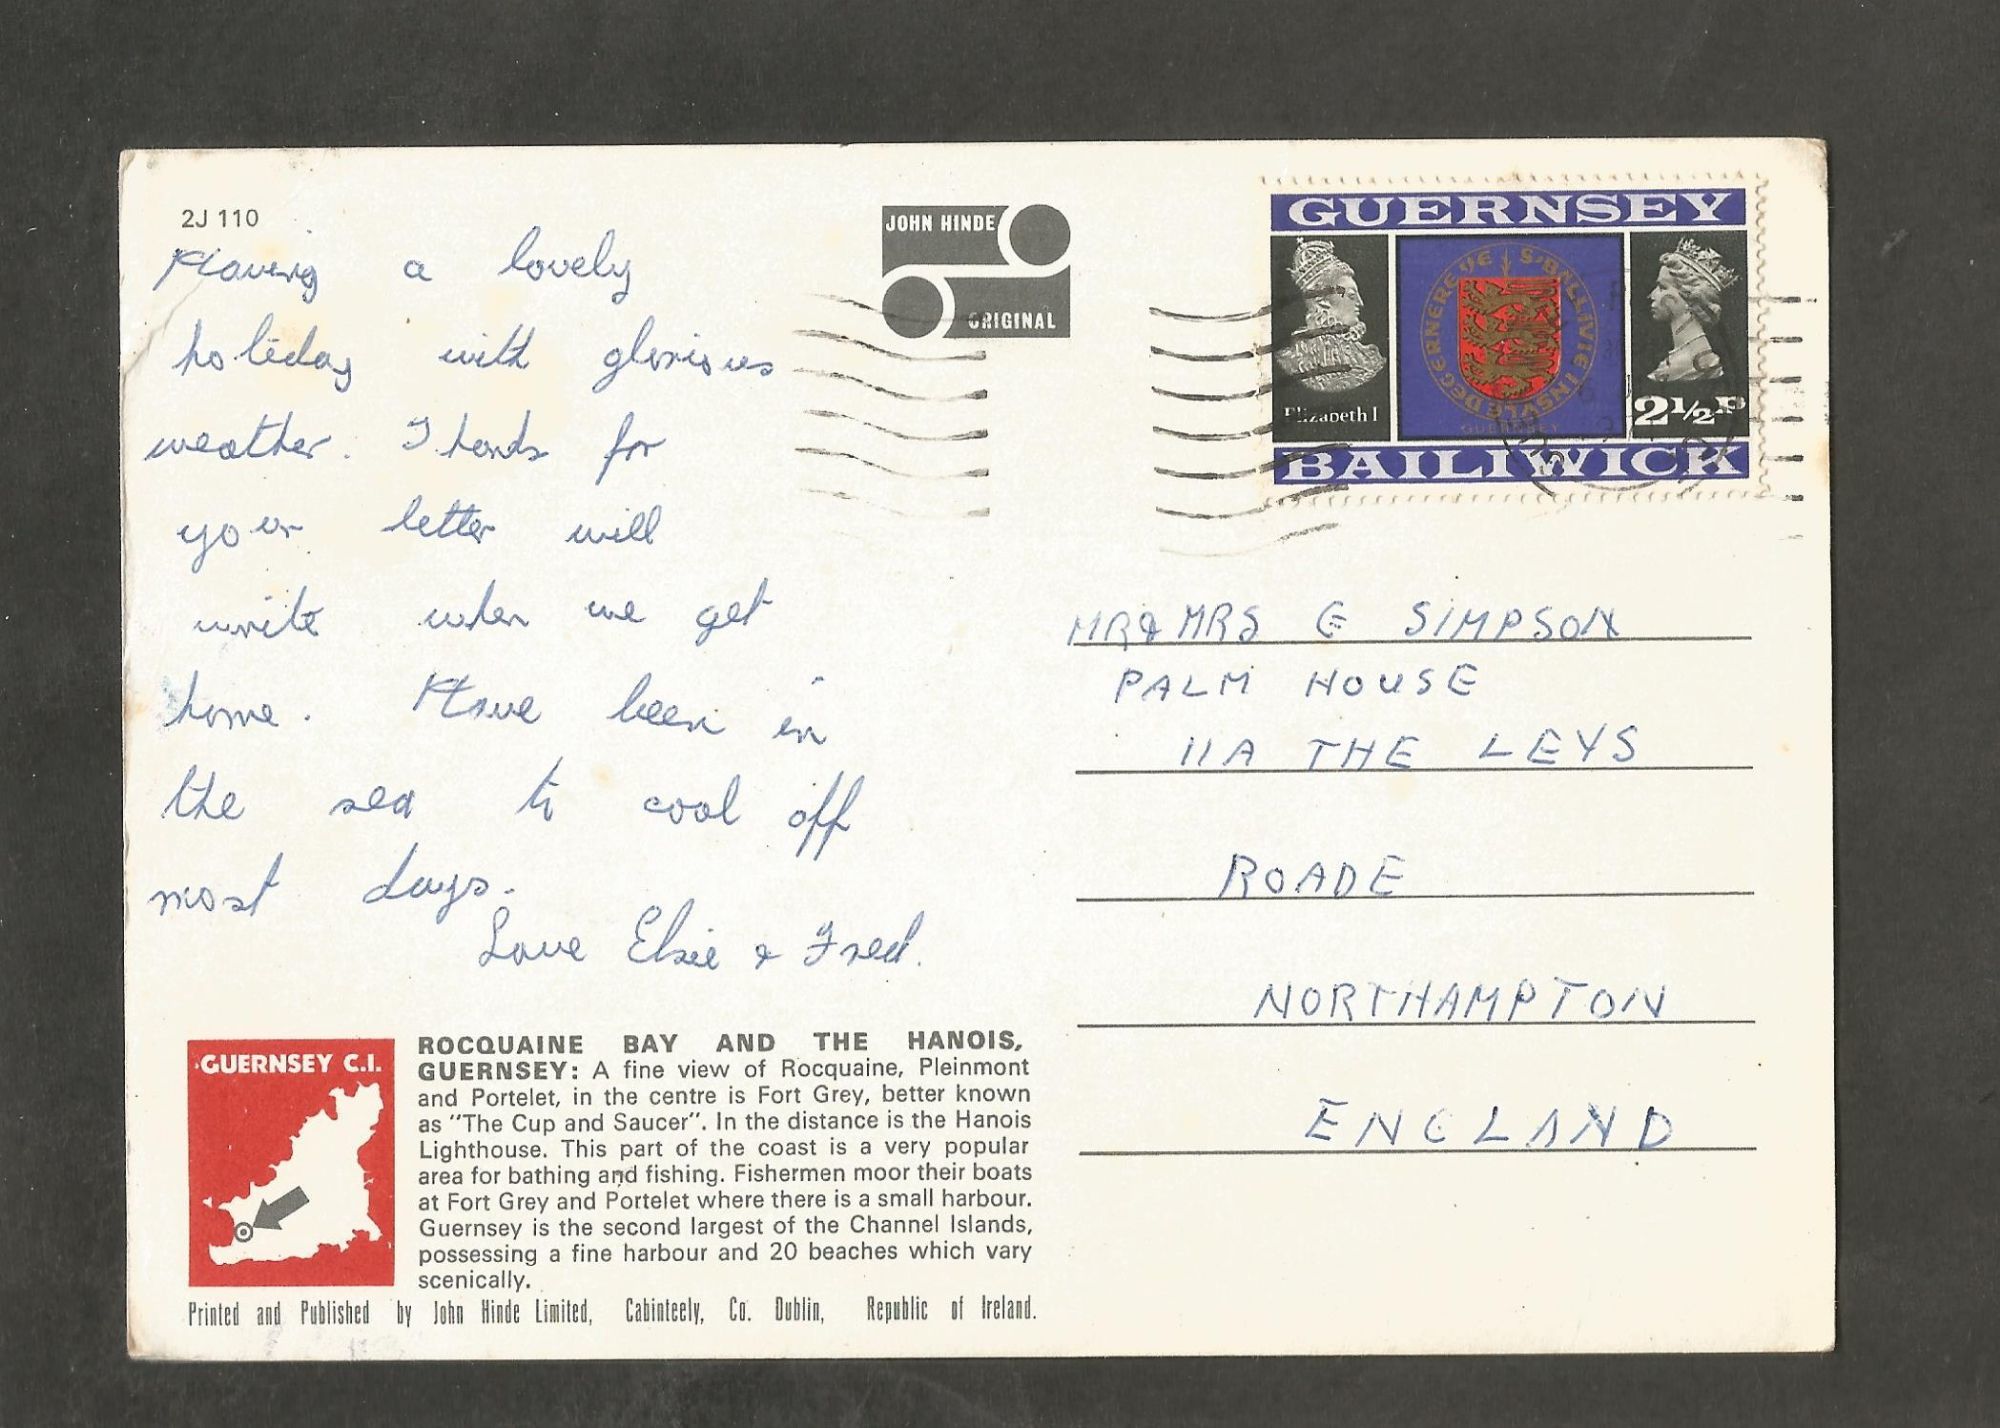 2J 110
Having a lovely
holiday with glorious
weather. Thanks for
your letter will
write when we get
home. Have been in
the sea to cool off
most days.
Love Elsie & Fred.
JOHN HINDE
ORIGINAL
GUERNSEY
S·BALLIVIE INSVLE DEGERNEREYE
GUERNSEY
Elizabeth I
2½P
BAILIWICK
MR & MRS G SIMPSON
PALM HOUSE
11A THE LEYS
ROADE
NORTHAMPTON
ENGLAND
GUERNSEY C.I.
ROCQUAINE BAY AND THE HANOIS,
GUERNSEY: A fine view of Rocquaine, Pleinmont
and Portelet, in the centre is Fort Grey, better known
as "The Cup and Saucer". In the distance is the Hanois
Lighthouse. This part of the coast is a very popular
area for bathing and fishing. Fishermen moor their boats
at Fort Grey and Portelet where there is a small harbour.
Guernsey is the second largest of the Channel Islands,
possessing a fine harbour and 20 beaches which vary
scenically.
Printed and Published by John Hinde Limited, Cabinteely, Co. Dublin, Republic of Ireland.